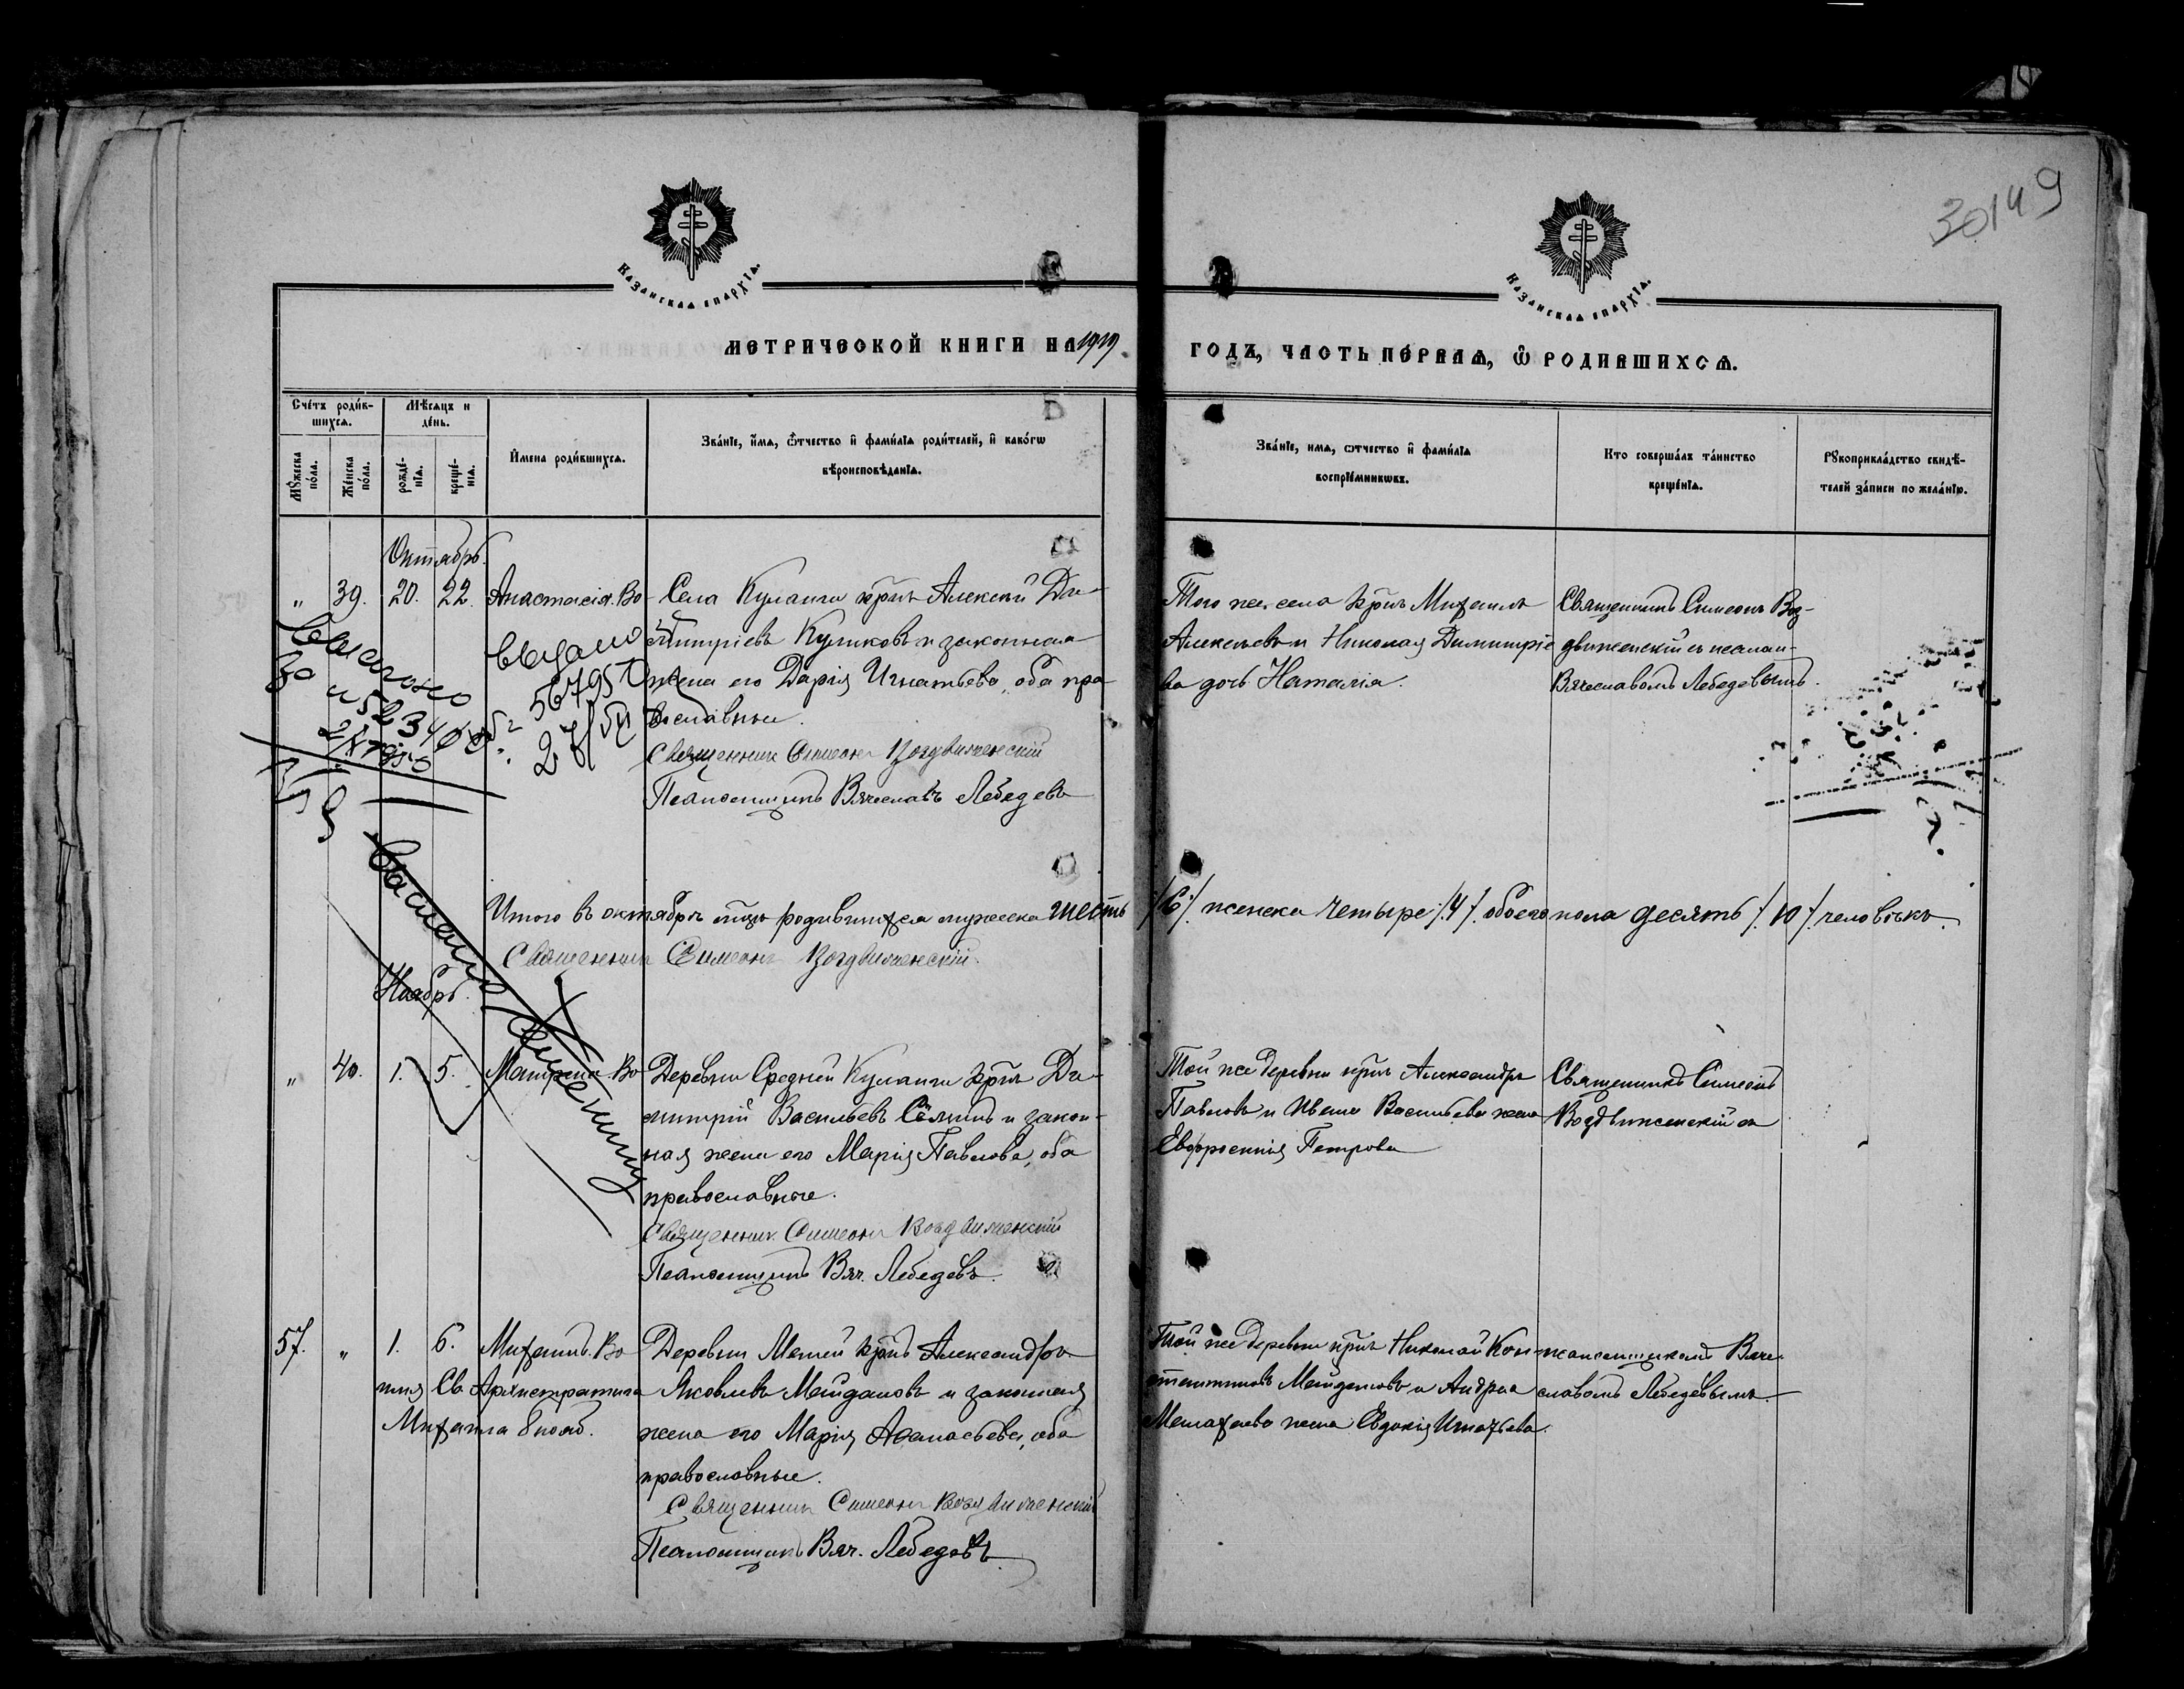 30149
Казанская епархїа.
Казанская епархїа.
МЕТРИЧЕСКОЙ КНИГИ НА 1919
ГОДЪ, ЧАСТЬ ПЕРВАЯ, Ѡ РОДИВШИХСЯ.
Счетъ родив-
шихся.
Мѣсяцъ и
день.
Мꙋжеска
пола.
Женска
пола.
рожде-
нїя.
креще-
нїя.
Имена родившихся.
Званїе, имя, ѿчество и фамилїа родителей, и какогѡ
вѣроисповѣданїя.
Званїе, имя, ѿчество и фамилїа
воспрїемникѡвъ.
Кто совершалъ таинство
крещенїя.
Рꙋкоприкладство свидѣ-
телей записи по желанїю.
Октябрь.
" 39. 20. 22. Анастасія. Во
Села Куланги крнъ Алексѣй Ди-
митріевъ Куликовъ и законная
жена его Дарія Игнатьева, оба пра
вославные.
Священникъ Симеонъ Воздвиженскій
Псаломщикъ Вячеславъ Лебедевъ
Того же села крнъ Михаилъ
Алексѣевъ и Николая Димитріе
ва дочь Наталія.
Священникъ Симеонъ Воз-
движенскій съ псалом-
Вячеславомъ Лебедевымъ.
выдано
567957
27/
Итого въ октябрѣ мцѣ родившихся мужеска шесть /6/. женска четыре /4/. обоего пола десять /10/ человѣкъ.
Священникъ Симеонъ Воздвиженскій.
Ноябрь.
" 40. 1. 5. Матрена. Во
Деревни Средней Куланги крнъ Ди-
митрій Васильевъ и закон-
ная жена его Марія Павлова, оба
православные.
Священникъ Симеонъ Воздвиженскій
Псаломщикъ Вяч. Лебедевъ.
Той же деревни крнъ Александръ
Павловъ и Ивана Васильева жена
Евфросинія Петрова
Священникъ Симеонъ
Воздвиженскій съ
57. " 1. 6. Михаилъ. Во
имя Св. Архистратига
Михаила 8 нояб.
Деревни Мемей крнъ Александръ
Яковлевъ Мейдановъ и законная
жена его Марія Аѳанасьева, оба
православные.
Священникъ Симеонъ Воздвиженскій
Псаломщикъ Вяч. Лебедевъ.
Той же деревни крнъ Николай Кон-
стантиновъ Мейдановъ и Андрея
жена Евдокія Игнатьева.
псаломщикомъ Вяче
славомъ Лебедевымъ.